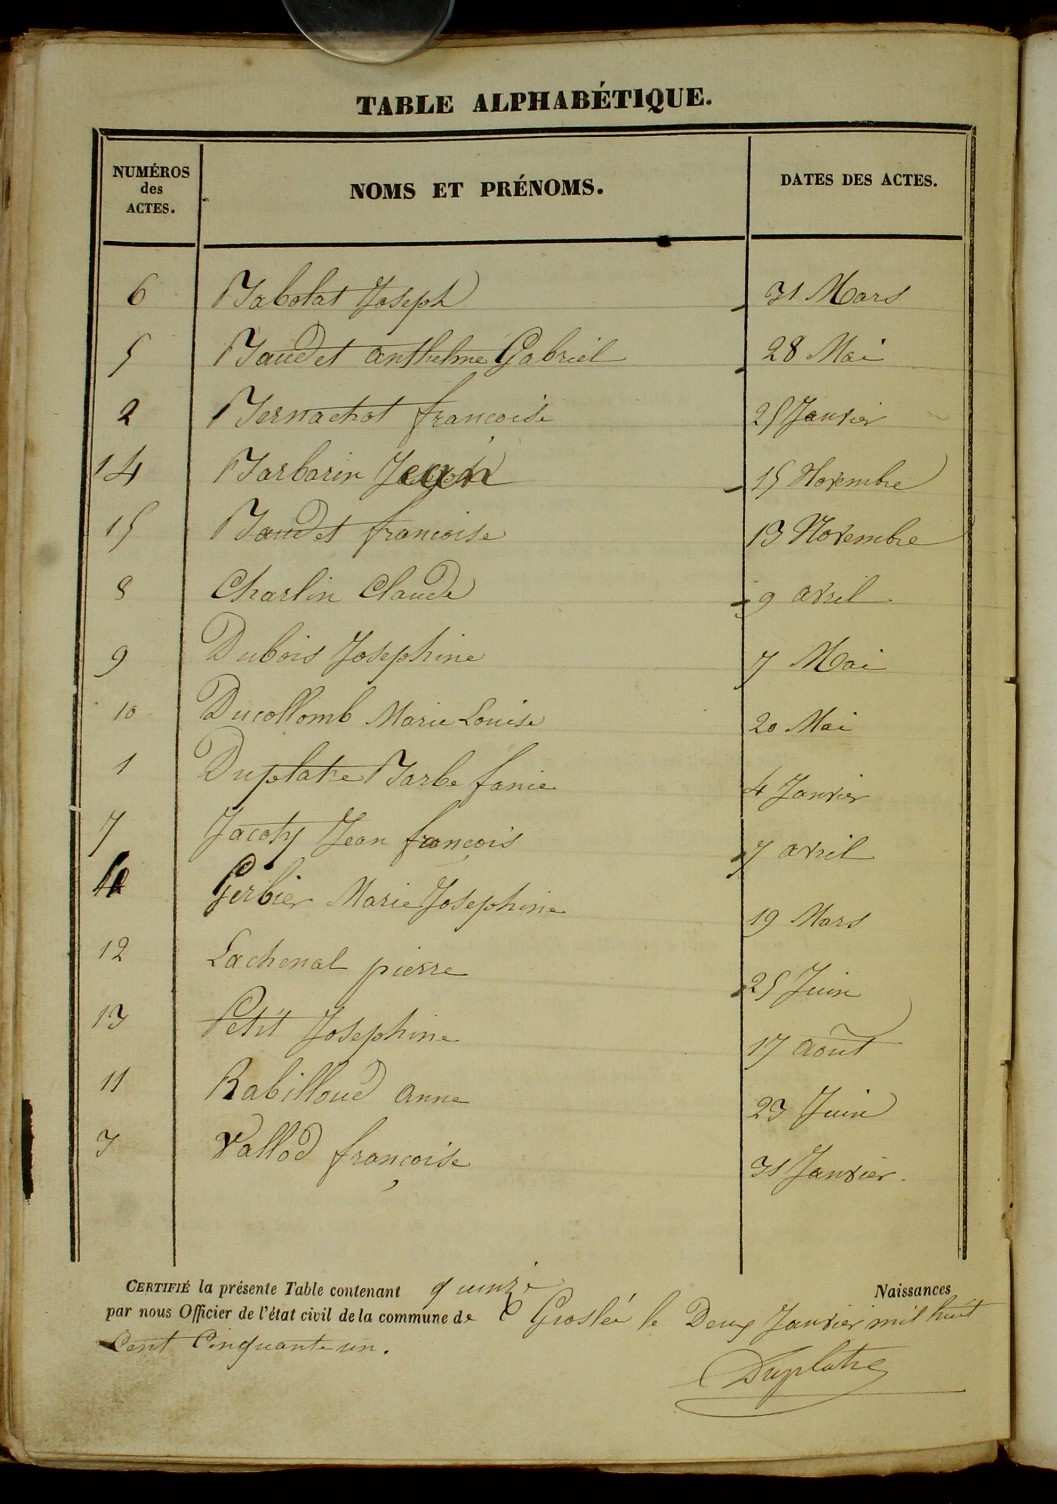 TABLE ALPHABÉTIQUE.
NUMÉROS des ACTES. NOMS ET PRÉNOMS. DATES DES ACTES.
6 Babolat Joseph 31 Mars
5 Baudet anthelme Gabriel 28 Mai
2 Bernachot françoise 25 Janvier
14 Barbarin Jean 15 Novembre
15 Baudet francoise 13 Novembre
8 Charlin Claude 9 avril
9 Dubois Josephine 7 Mai
10 Ducollomb Marie Louise 20 Mai
1 Duplatre Barbe fanie 4 Janvier
7 Jacoty Jean françois 7 avril
4 Gerbier Marie Josephine 19 Mars
12 Lachenal pierre 25 Juin
13 Petit Josephine 17 août
11 Rabilloud anne 23 Juin
3 Vallod françoise 31 Janvier.
CERTIFIÉ la présente Table contenant quinze Naissances
par nous Officier de l'état civil de la commune de Groslée le Deux Janvier mil huit
Cent Cinquante un.
Duplatre